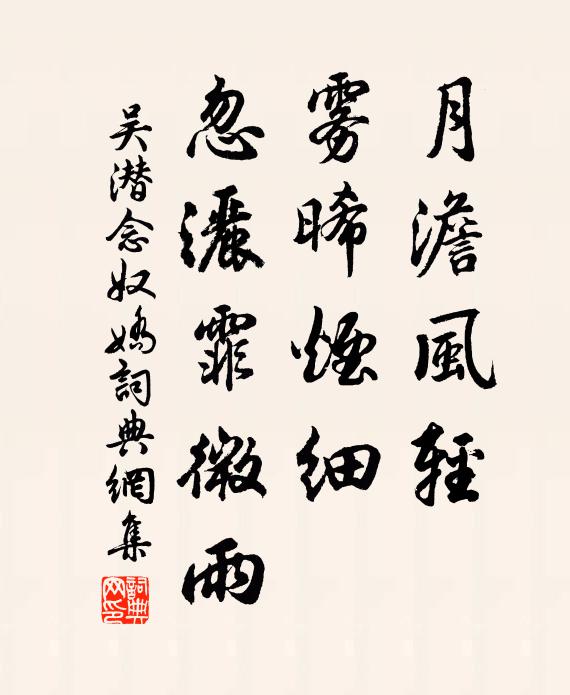 月澹風輕
霧晞煙細
忽灑霏微雨
吴潜念奴嬌詞典網集
詞典網印